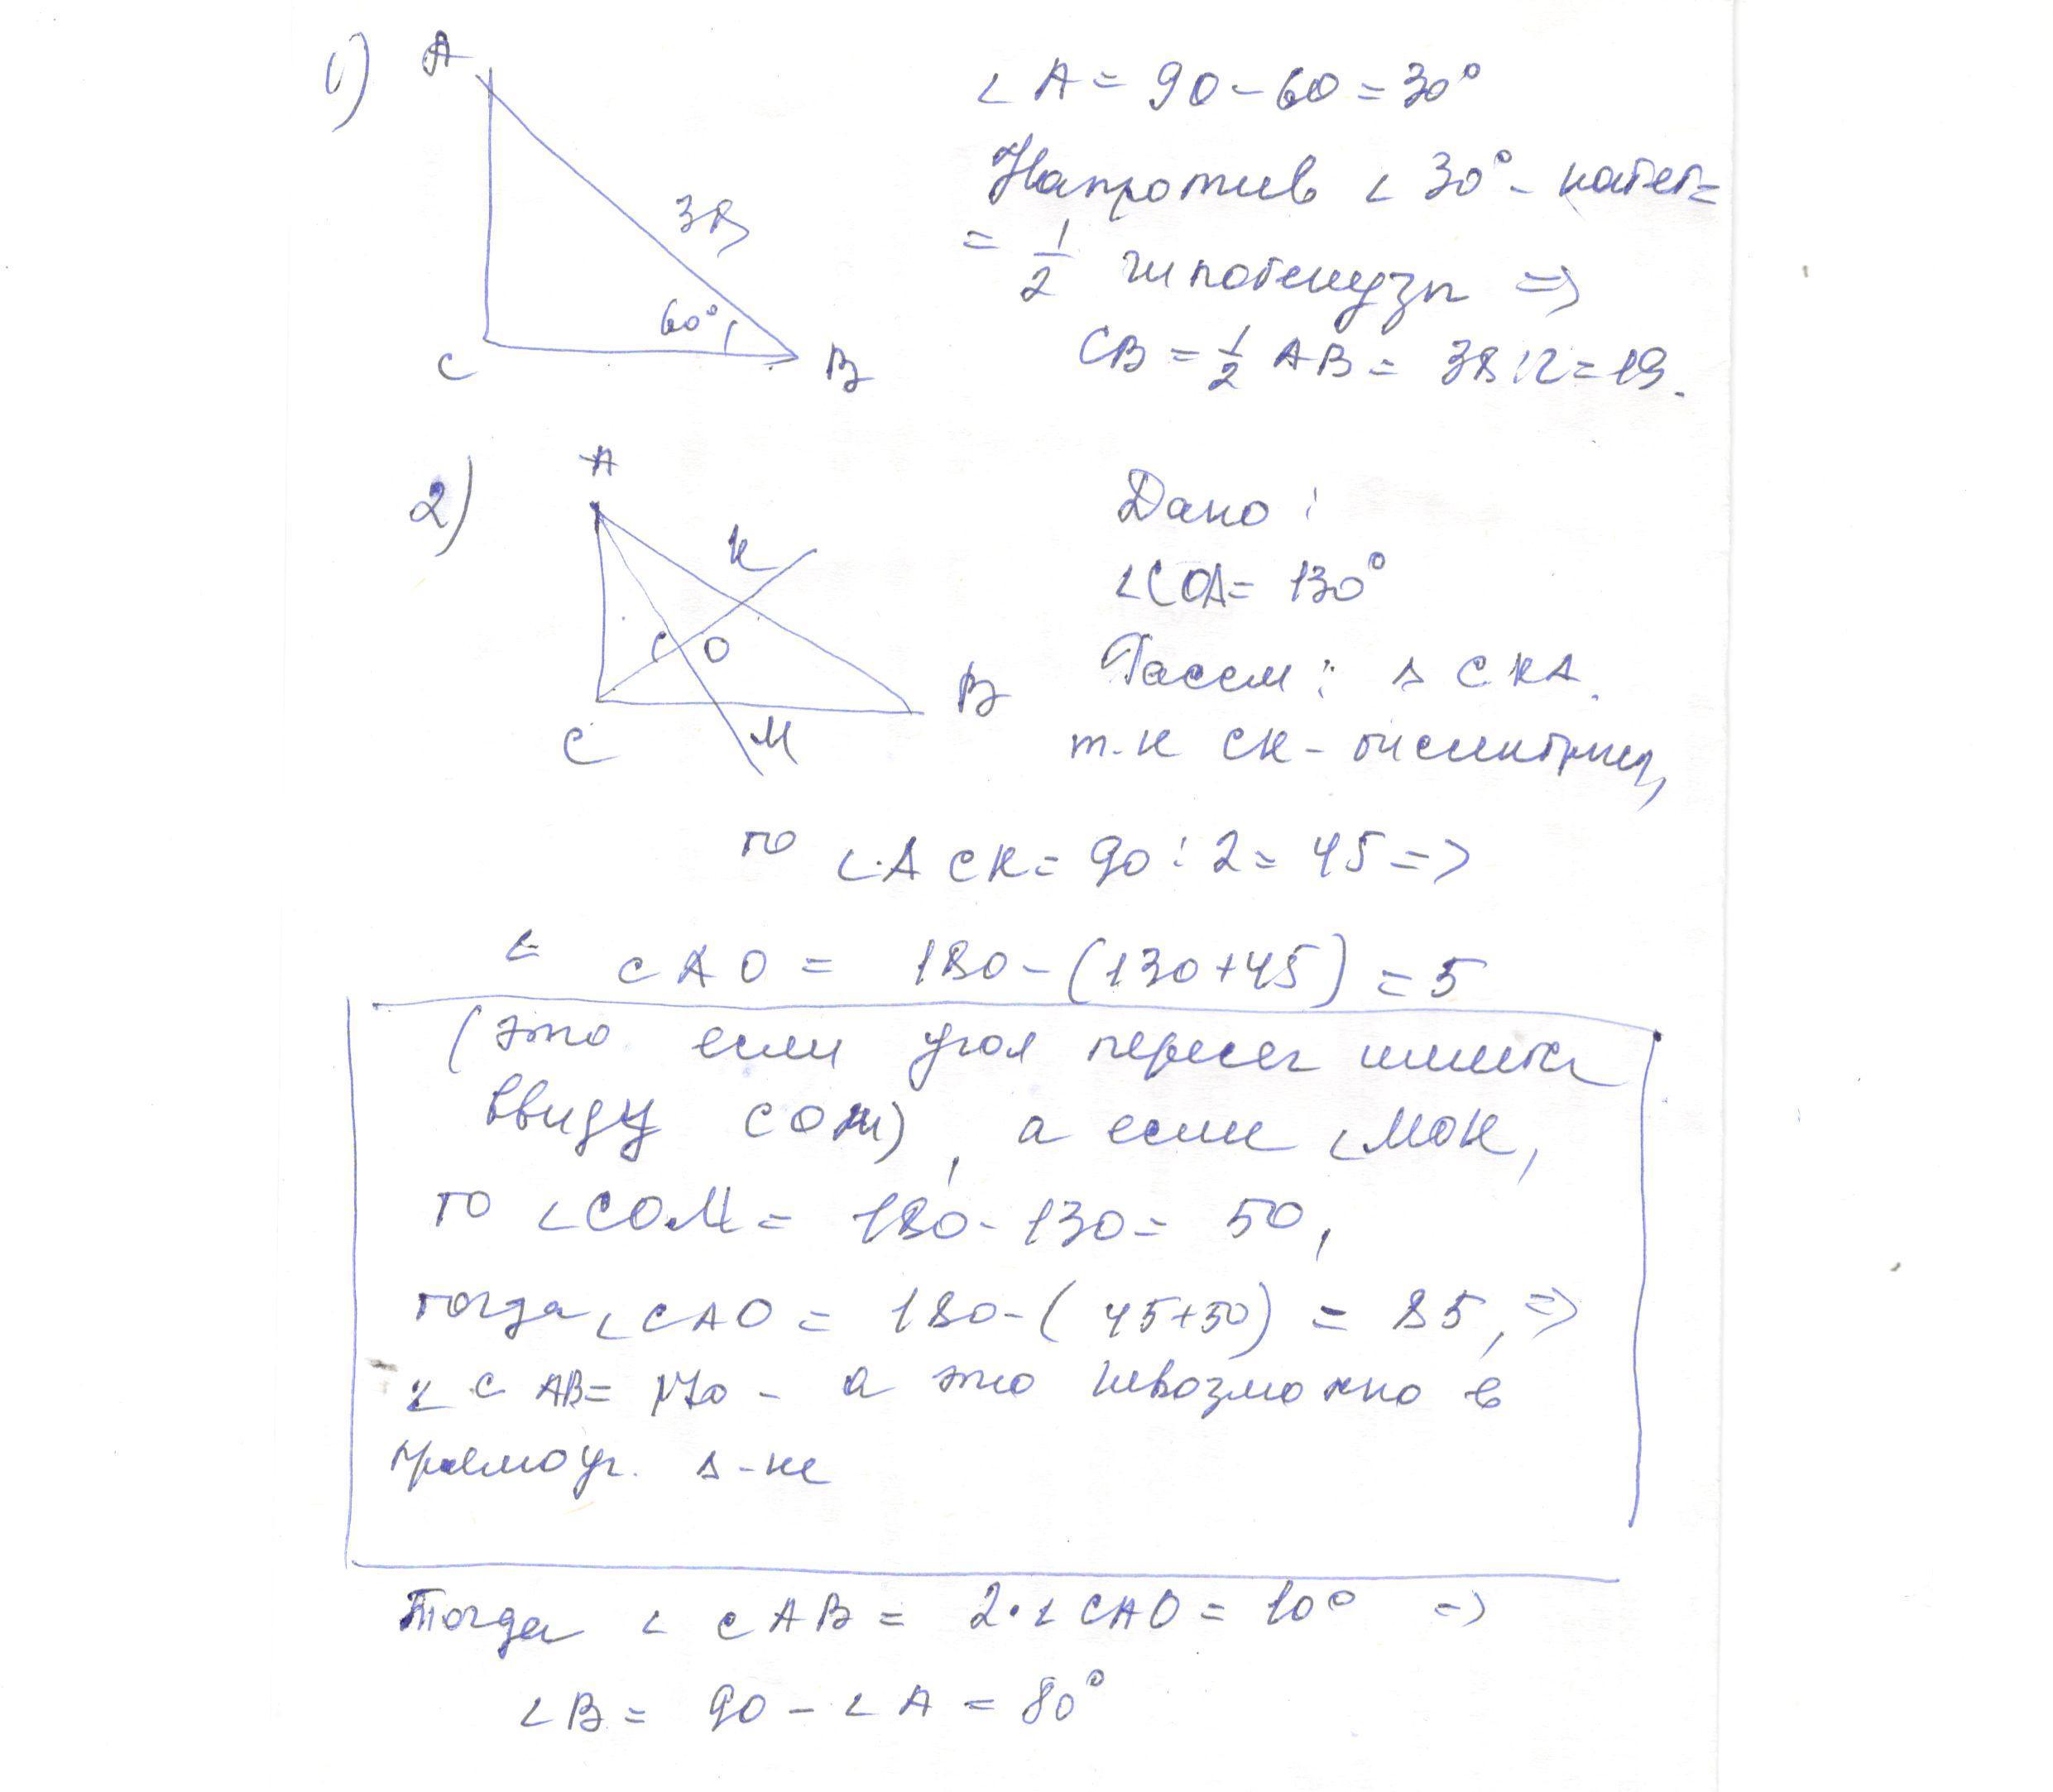 1)
A
38
60°
C
B
∠A = 90 - 60 = 30°
Напротив ∠30° - катет =
= 1/2 гипотенузы =>
CB = 1/2 AB = 38:2 = 19.
2)
A
K
O
B
C
M
Дано:
∠COA = 130°
Рассм: Δ CKA.
т.к CK - биссектриса,
то ∠ACK = 90:2 = 45 =>
∠ CAO = 180 - (130+45) = 5
(это если угол пересеч имеют
ввиду COA), а если ∠MOK,
то ∠COM = 180 - 130 = 50,
тогда ∠CAO = 180 - (45+50) = 85, =>
∠CAB = 170 - а это невозможно в
прямоуг. Δ-ке
Тогда ∠ CAB = 2·∠CAO = 10° =>
∠B = 90 - ∠A = 80°